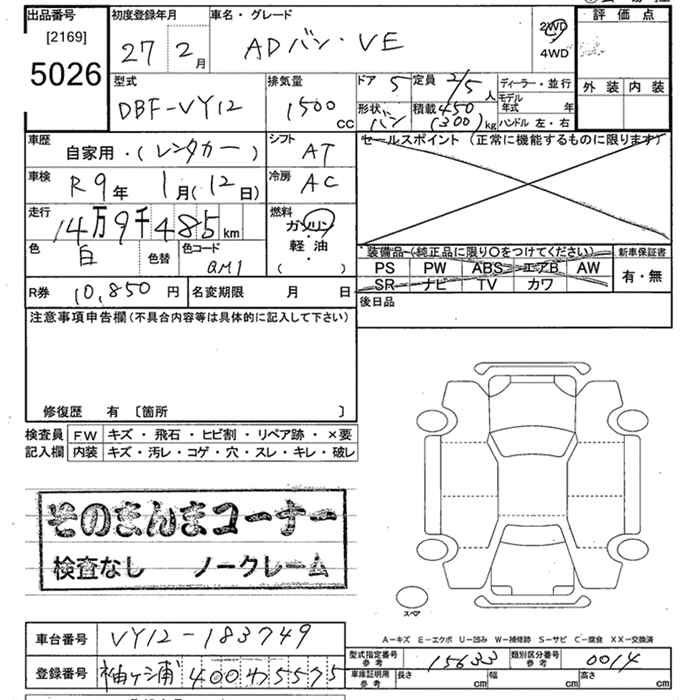 出品番号
[2169]
5026
初度登録年月
27 2月
車名・グレード
ADバン・VE
2WD
4WD
評価点
外装 内装
型式
DBF-VY12
排気量
1500 cc
ドア 5
定員 2/5人
形状 バン
積載 450 (300)kg
ディーラー・並行
モデル年式 年
ハンドル 左・右
車歴
自家用・(レンタカー)
シフト
AT
セールスポイント(正常に機能するものに限ります)
車検
R9年 1月(12日)
冷房
AC
走行
14万9千485km
燃料
ガソリン
・
軽・油
( ・ )
色
白
色替
色コード
QM1
装備品(純正品に限り○をつけてください)
PS PW ABS エアB AW
SR ナビ TV カワ
新車保証書
有・無
R券 10,850円
名変期限 月 日
後日品
注意事項申告欄(不具合内容等は具体的に記入して下さい)
修復歴 有 〔箇所 〕
検査員 FW キズ・飛石・ヒビ割・リペア跡・×要
記入欄 内装 キズ・汚レ・コゲ・穴・スレ・キレ・破レ
そのまんまコーナー
検査なし ノークレーム
スペア
A―キズ E―エクボ U―凹み W―補修跡 S―サビ C―腐食 XX―交換済
車台番号 VY12-183749
登録番号 袖ヶ浦400わ5575
型式指定番号 参考 15633
類別区分番号 参考 0014
車庫証明用 参考 長さ cm 幅 cm 高さ cm